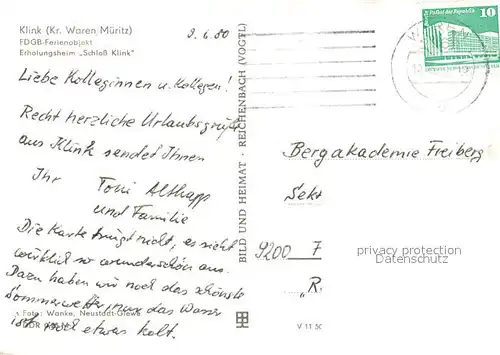 Klink (Kr. Waren Müritz)
FDGB-Ferienobjekt
Erholungsheim „Schloß Klink"
9.6.80
Liebe Kolleginnen u. Kollegen!
Recht herzliche Urlaubsgrüße
aus Klink sendet Ihnen
Ihr Toni Althapp
und Familie
Die Karte trügt nicht, es sieht
wirklich so wunderschön aus.
Dazu haben wir noch das schönste
Sommerwetter, nur das Wasser
ist noch etwas kalt.
Foto: Wanke, Neustadt-Glewe
BILD UND HEIMAT · REICHENBACH (VOGTL)
10
Palast der Republik
Bergakademie Freiberg
Sekt
9200 F
"R
privacy protection
Datenschutz
V 11 50